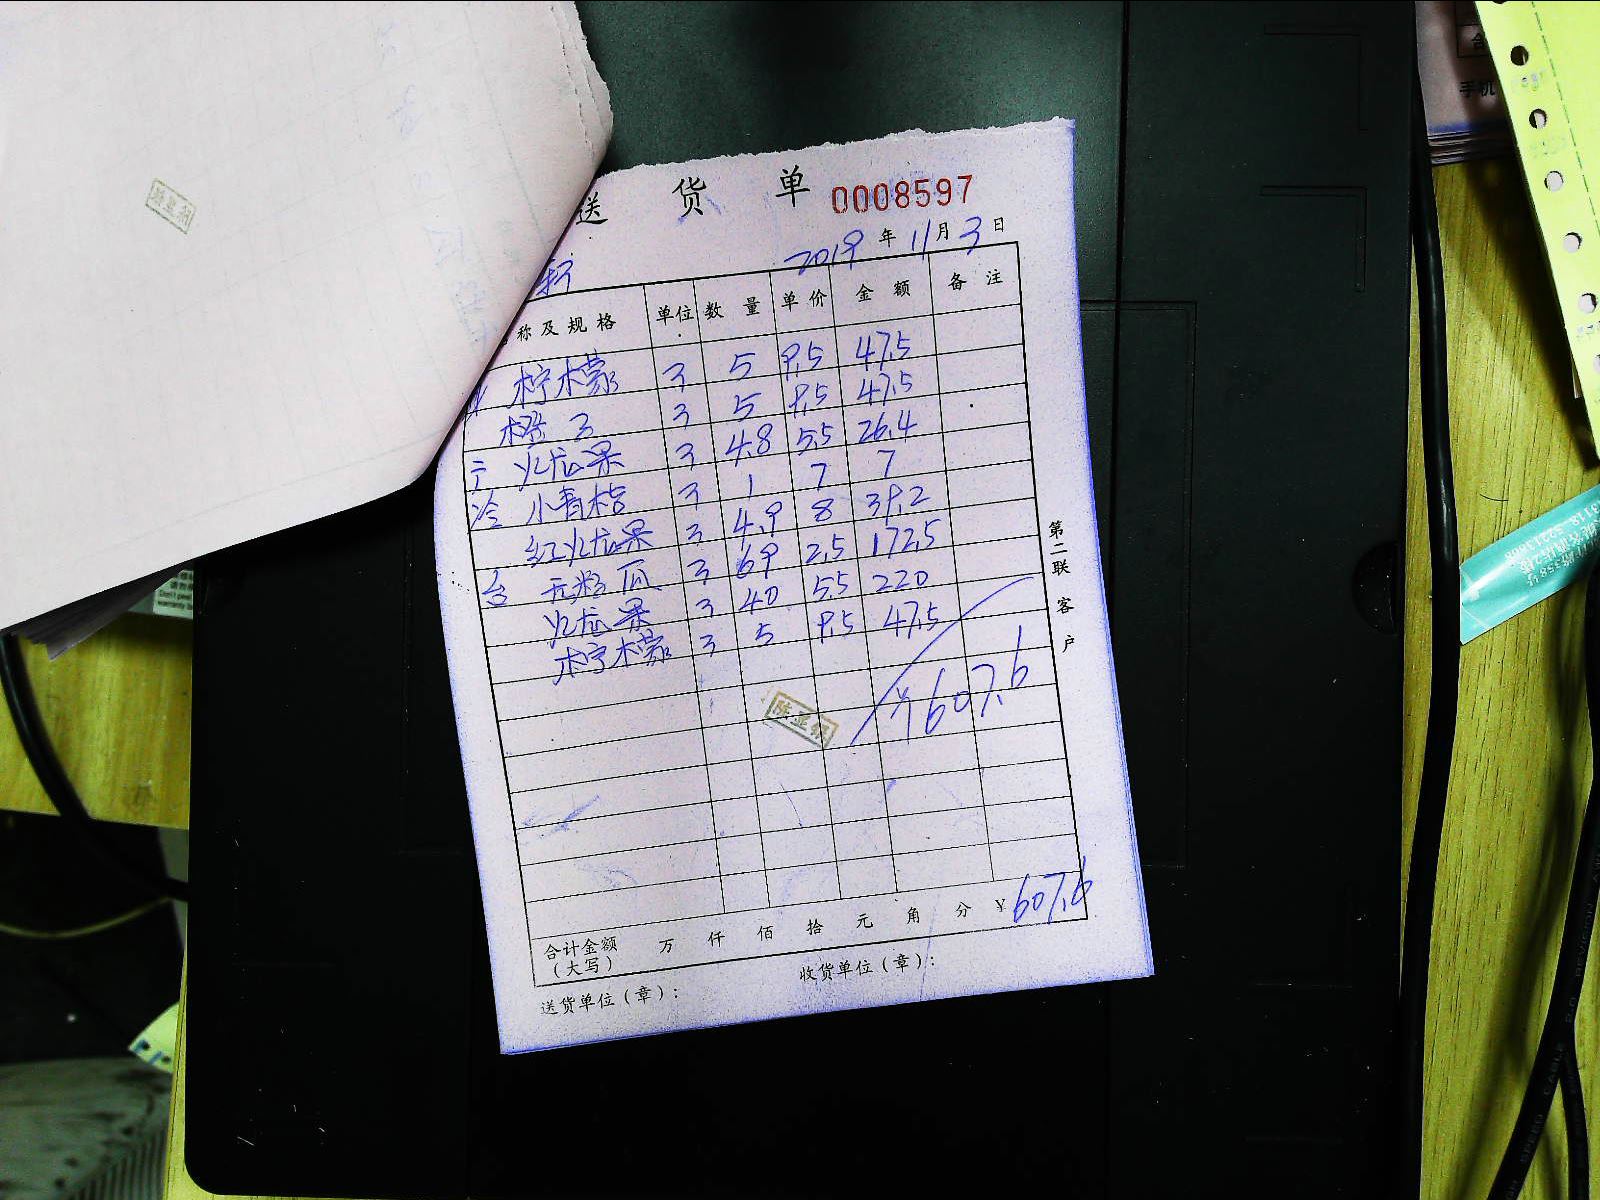 送 货 单 0008597
2019 年 11 月 3 日
称及规格 单位 数量 单价 金额 备注
柠檬 3 5 9.5 47.5
橙子 3 5 9.5 47.5
火龙果 3 4.8 5.5 26.4
冷 小青桔 3 1 7 7
红火龙果 3 4.9 8 39.2
台 无籽瓜 3 69 2.5 172.5
火龙果 3 40 5.5 220
柠檬 3 5 9.5 47.5
¥607.6
陈亚
合计金额（大写） 万 仟 佰 拾 元 角 分 ¥607.6
送货单位（章）： 收货单位（章）：
第二联 客户
手机